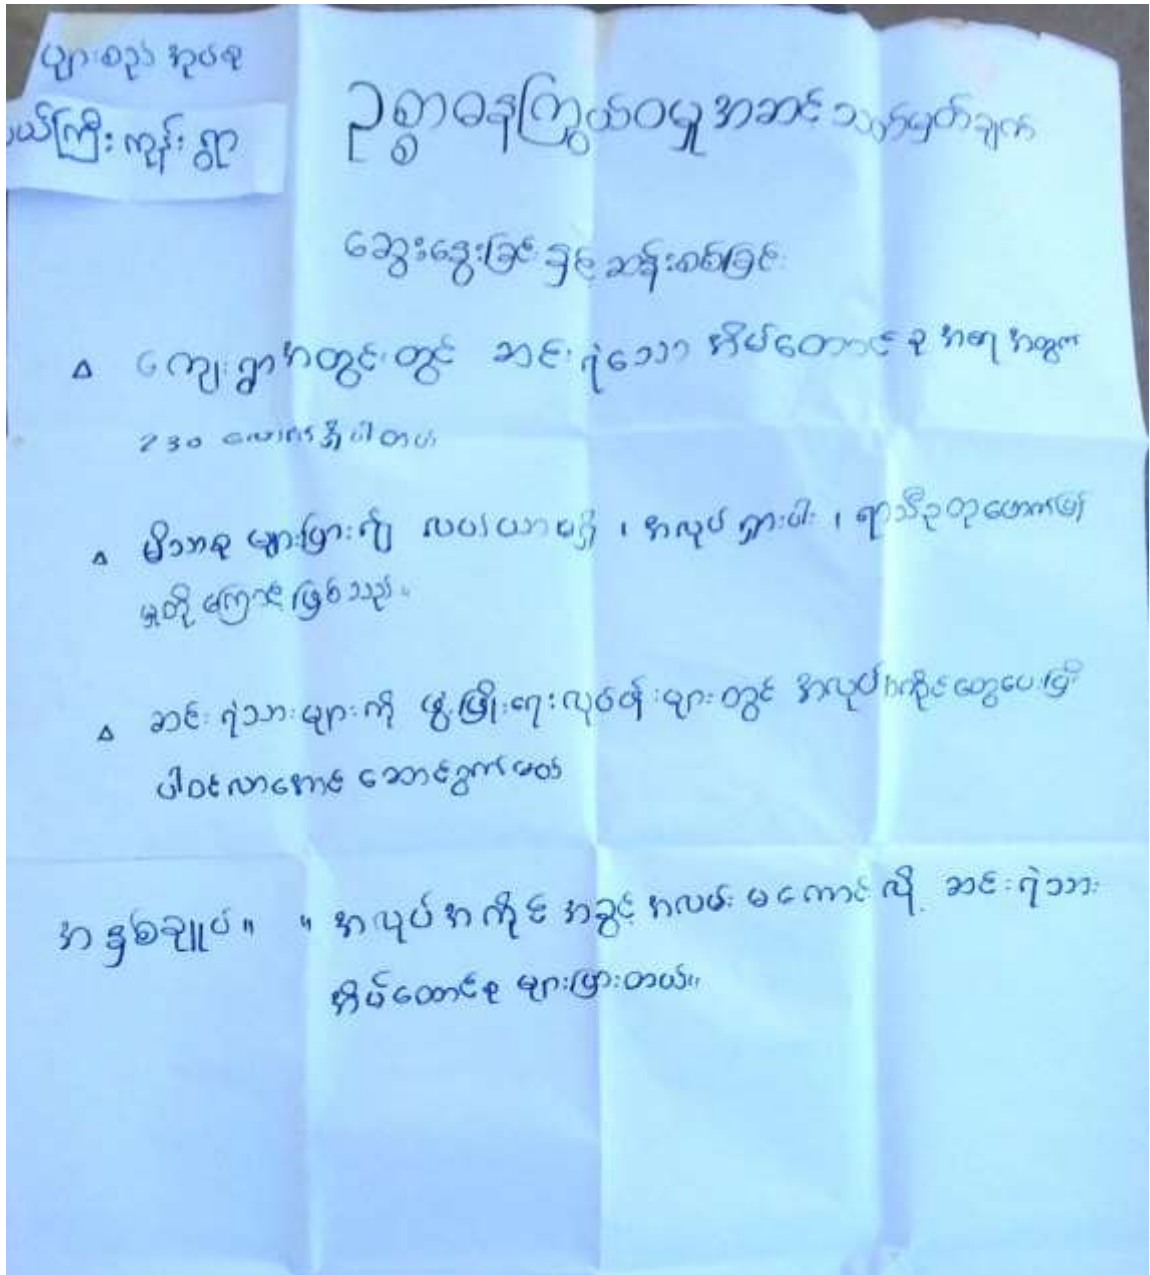 ပျားစည် အုပ်စု
ယ်ကြီးကုန်းရွာ
ဥစ္စာဓနကြွယ်ဝမှုအဆင့်သတ်မှတ်ချက်
ဆွေးနွေးခြင်းနှင့်ဆန်းစစ်ခြင်း
ကျေးရွာအတွင်းတွင် ဆင်းရဲသော အိမ်ထောင်စု အရေအတွက်
230 လောက်ရှိပါတယ်
မိသားစု များပြား၍ လယ်ယာမရှိ ၊ အလုပ်ရှားပါး ၊ ရာသီဥတုဖောက်ပြန်
မှုတို့ကြောင့်ဖြစ်သည်။
ဆင်းရဲသားများကို ဖွံ့ဖြိုးရေးလုပ်ငန်းများတွင် အလုပ်အကိုင်တွေပေးပြီး
ပါဝင်လာအောင် ဆောင်ရွက်မယ်
အနှစ်ချုပ်။ ။ အလုပ်အကိုင်အခွင့်အလမ်းမကောင်းလို့ ဆင်းရဲသား
အိမ်ထောင်စု များပြားတယ်။